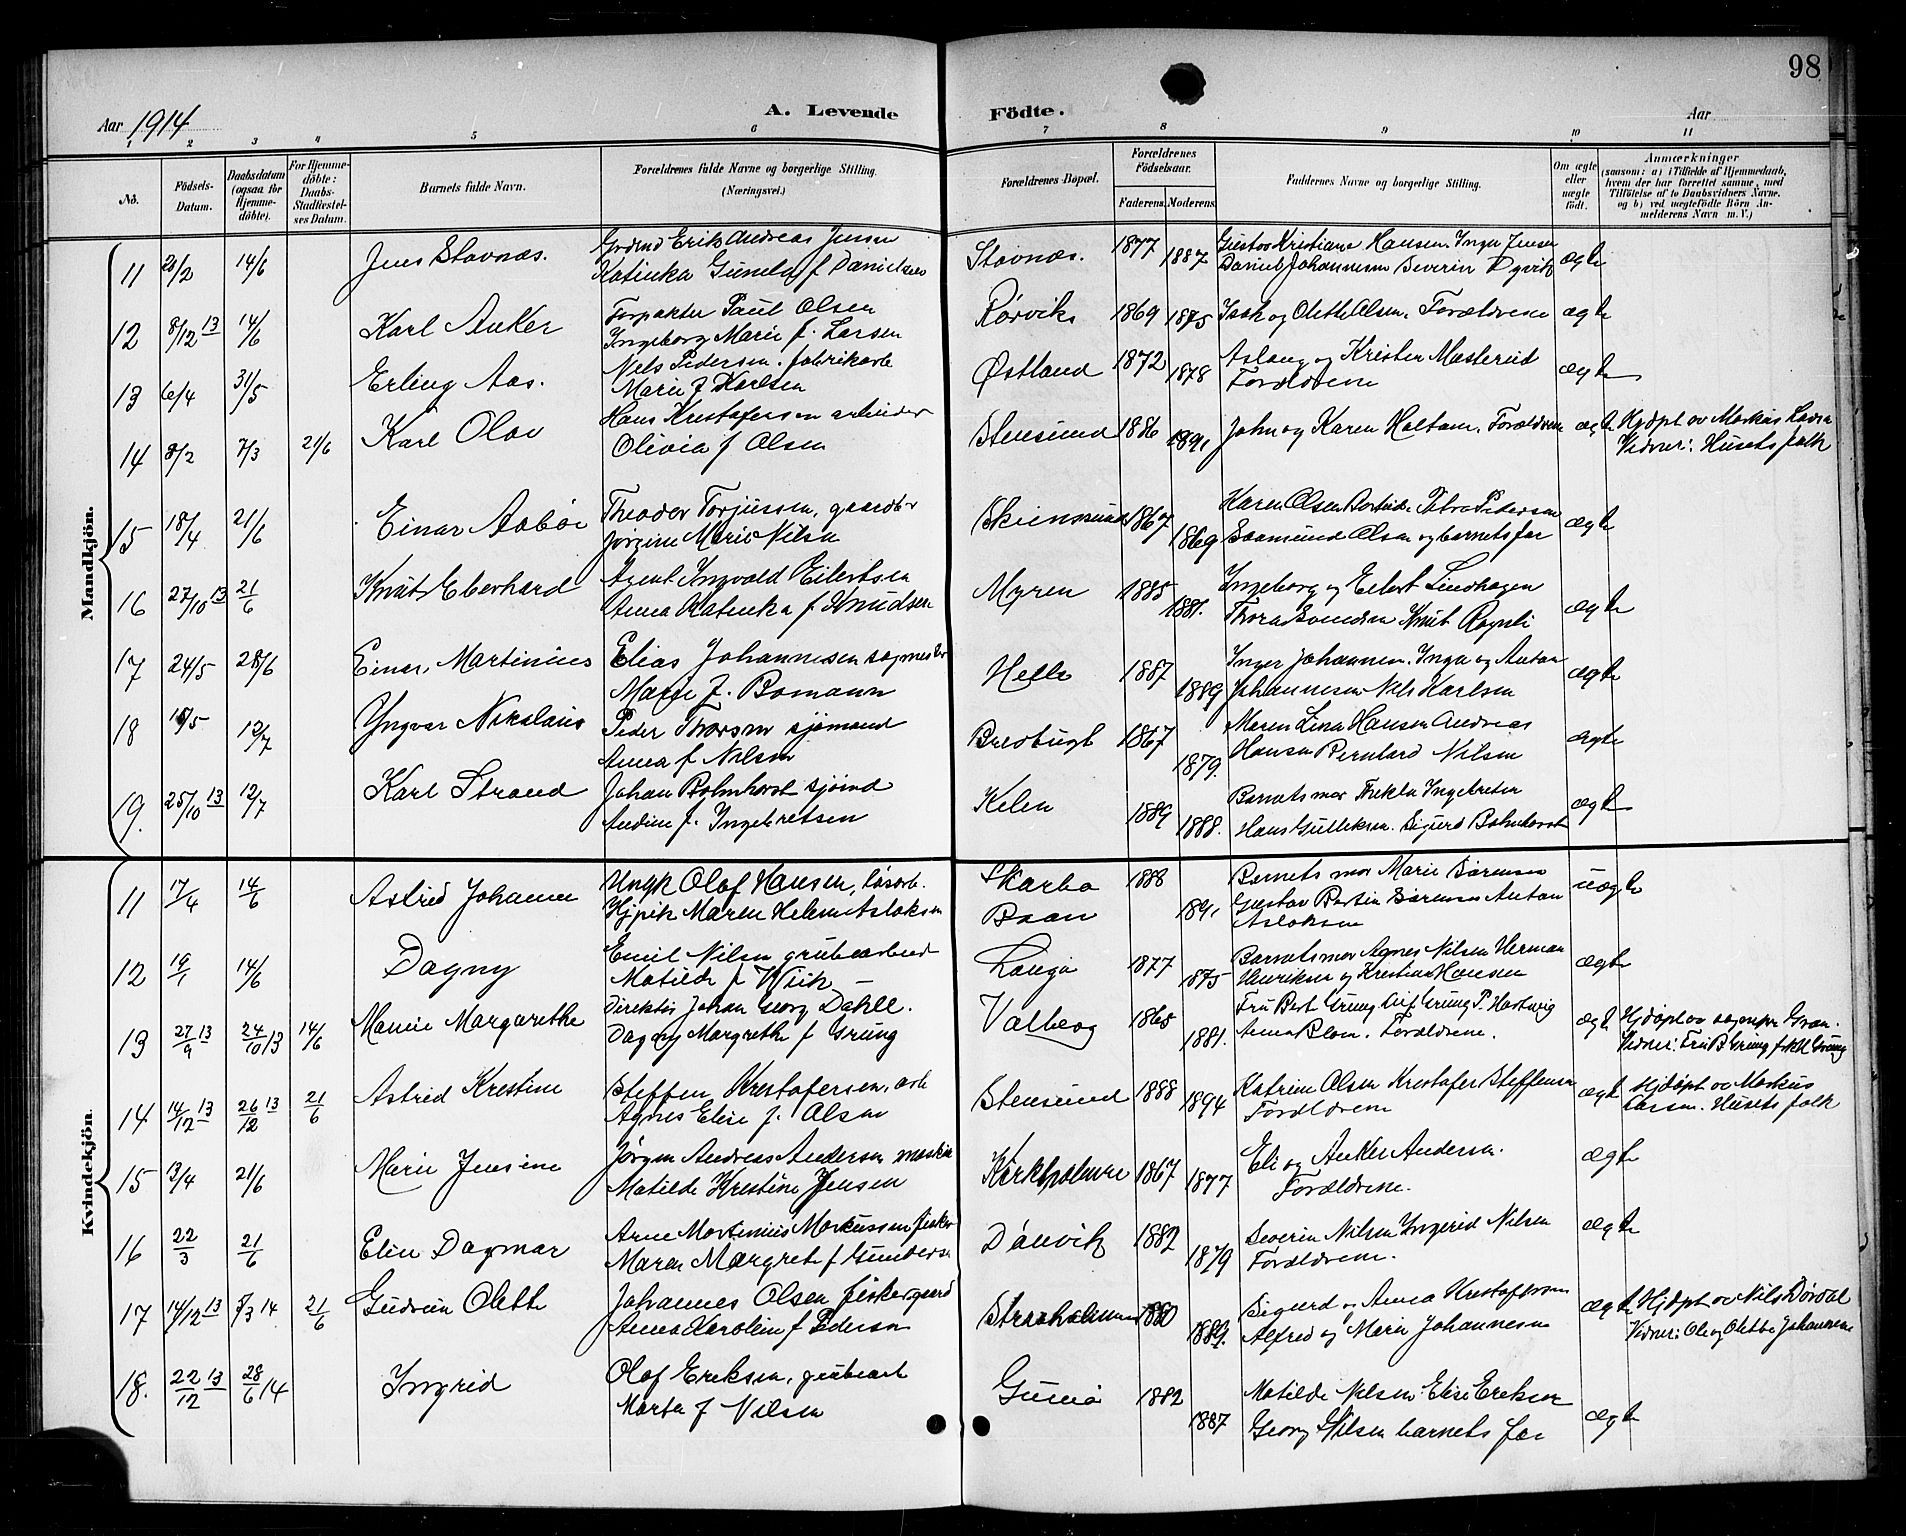 98
Aar 1914 A. Levende Födte. Aar
1 2 3 4 5 6 7 8 9 10 11
No. Födsels-Datum. Daabsdatum (ogsaa for Hjemme-döbte). For Hjemme-döbte: Daabs-Stadfæstel-ses Datum. Barnets fulde Navn. Forældrenes fulde Navne og borgerlige Stilling. (Næringsvei.) Forældrenes Bopæl. Forældrenes Födselsaar. Faderens. Moderens. Faddernes Navne og borgerlige Stilling. Om ægte eller uægte födt. Anmærkninger (saasom: a) i Tilfælde af Hjemmedaab, hvem der har forrettet samme, med Tilföielse af to Daabsvidners Navne. og b) ved uægtefödte Börn An-melderens Navn m. V.)
Mandkjön.
11 28/2 14/6 Jens Stavnæs. Erik Andreas Jensen Stavnæs. 1877 Gustav Kristiane Hansen. Inger Jensen
Katinka Gunelia f Danielsen 1887 Daniel Johannesen Severin Dyvik ægte
12 8/12 13 14/6 Karl Anker Forpakter Paul Olsen Rørvik 1869 1875 Isak og Olette Olsen. Forældrene ægte
Ingeborg Marie f. Larsen
13 6/4 31/5 Erling Aas. Nels Pedersen. fabrikarb Østland 1872 1878 Aslaug og Krister Mæsterud ægte
Marie f Karlsen Forældrene
14 8/2 7/3 21/6 Karl Olav Hans Kristofersen arbeider Stensund 1886 1891 John og Karen Holtam. Forældrene ægte Hjdøpt av Markus Larsen
Olivia f Olsen Vidner: Husets folk
15 18/4 21/6 Einar Aabøe Theodor Torjussen, gaardbr Skiensund 1867 Karen Olsen Petra Pedersen ægte
Jørgine Marie Nilsen 1869 Saamund Olsen og barnets far
16 27/10 13 21/6 Knut Eberhard Agent Ingvald Eilertsen Myren 1885 Ingeborg og Eilert Lindhagen
Anna Katinka f Knudsen 1881. Thora Svendsen Knut Rognli ægte
17 24/5 28/6 Einar, Martinius Elias Johannesen sagmester Helle 1887 Inger Johannesen. Inga og Anton ægte
Marie f. Bomann 1889 Johannesen Nils Karlsen
18 18/5 12/7 Yngvar Nikolaus Peder Thorsen sjømand Bredbugt 1867 Maren Lina Hansen Andreas ægte
Anna f Nilsen 1879. Hansen Bernhard Nilsen
19. 25/10 13 12/7 Karl Strand Johan Bohnhorst sjømd Kelen 1889 Barnets mor Thekla Ingebretsen ægte
Andine f. Ingebretsen 1888. Hans Gulleksen. Sigurd Bohnhorst
Kvindekjön.
11 17/4 14/6 Astrid Johanne Ungk Olaf Hansen, løsarb. Skarbo 1888 Barnets mor Marie Sørensen uægte
Hjpik Maren Helene Asloksen Braan 1891 Gustav Bertin Sørensen Anton
Asloksen
12 19/1 14/6 Dagny Emil Nilsen grubearbeid Langø 1877 Barnets mor Agnes Nilsen Herman ægte
Matilde f Wiik 1875 Henriksen og Kristian Hansen
13 27/9 13 24/10 13 14/6 Mamie Margarethe Direktør Johan Georg Dahll. Valberg 1865 Fru Bert Grung Alf Grung P. Hartvig ægte Hjdøpt av sognepr Gran.
Dagny Margrethe f Grung 1881. Anna Blom. Forældrene. Vidner: Fru B Grung frk M Grung
14 14/12 13 26/12 13 21/6 Astrid Kristine Steffen Kristofersen, arb Stensund 1888 1894 Katrine Olsen Kristofer Steffensen ægte Hjdøpt av Markus
Agnes Elise f. Olsen Forældrene Larsen. Husets folk
15 13/4 21/6 Marie Jensine Jørgen Andreas Andersen maskin Kirkholmen 1867 1877 Eli og Anker Andersen. ægte
Matilde Kristine Jensen Forældrene.
16 22/3 21/6 Elin Dagmar Arne Martinius Markussen fisker Dånvik 1882 1879 Severin Nilsen Ingerid Nilsen ægte
Maren Margrete f Gundersen Forældrene.
17 14/12 13 8/3 14 21/6 Gudrun Olette Johannes Olsen fiskergaard Straaholmen 1880 Sigurd og Anna Kristofersen ægte Hjdøpt av Nils Dørdal
Anna Karoline f Pedersen 1889. Alfred og Marie Johannesen Vidner: Ole og Olette Johannesen
18. 22/12 13 28/6 14 Ingrid Olaf Eriksen, grubearb Gumø 1882 Matilde Nilsen Elise Eriksen ægte
Marta f Nilsen 1887 Georg Nilsen barnets far